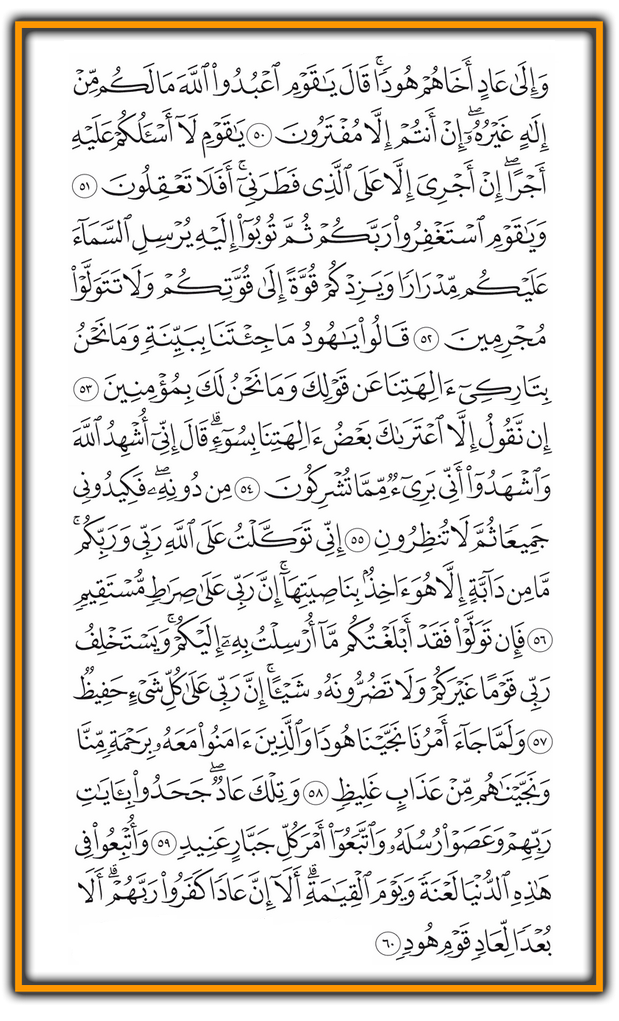 وَإِلَىٰ عَادٍ أَخَاهُمْ هُودًاۚ قَالَ يَٰقَوْمِ ٱعْبُدُوا۟ ٱللَّهَ مَا لَكُم مِّنْ
إِلَٰهٍ غَيْرُهُۥٓۖ إِنْ أَنتُمْ إِلَّا مُفْتَرُونَ ٥٠ يَٰقَوْمِ لَآ أَسْـَٔلُكُمْ عَلَيْهِ
أَجْرًاۖ إِنْ أَجْرِىَ إِلَّا عَلَى ٱلَّذِى فَطَرَنِىٓۚ أَفَلَا تَعْقِلُونَ ٥١
وَيَٰقَوْمِ ٱسْتَغْفِرُوا۟ رَبَّكُمْ ثُمَّ تُوبُوٓا۟ إِلَيْهِ يُرْسِلِ ٱلسَّمَآءَ
عَلَيْكُم مِّدْرَارًا وَيَزِدْكُمْ قُوَّةً إِلَىٰ قُوَّتِكُمْ وَلَا تَتَوَلَّوْا۟
مُجْرِمِينَ ٥٢ قَالُوا۟ يَٰهُودُ مَا جِئْتَنَا بِبَيِّنَةٍ وَمَا نَحْنُ
بِتَارِكِىٓ ءَالِهَتِنَا عَن قَوْلِكَ وَمَا نَحْنُ لَكَ بِمُؤْمِنِينَ ٥٣
إِن نَّقُولُ إِلَّا ٱعْتَرَىٰكَ بَعْضُ ءَالِهَتِنَا بِسُوٓءٍۗ قَالَ إِنِّىٓ أُشْهِدُ ٱللَّهَ
وَٱشْهَدُوٓا۟ أَنِّى بَرِىٓءٌ مِّمَّا تُشْرِكُونَ ٥٤ مِن دُونِهِۦۖ فَكِيدُونِى
جَمِيعًا ثُمَّ لَا تُنظِرُونِ ٥٥ إِنِّى تَوَكَّلْتُ عَلَى ٱللَّهِ رَبِّى وَرَبِّكُمۚ
مَّا مِن دَآبَّةٍ إِلَّا هُوَ ءَاخِذٌۢ بِنَاصِيَتِهَآۚ إِنَّ رَبِّى عَلَىٰ صِرَٰطٍ مُّسْتَقِيمٍ
٥٦ فَإِن تَوَلَّوْا۟ فَقَدْ أَبْلَغْتُكُم مَّآ أُرْسِلْتُ بِهِۦٓ إِلَيْكُمْۚ وَيَسْتَخْلِفُ
رَبِّى قَوْمًا غَيْرَكُمْ وَلَا تَضُرُّونَهُۥ شَيْـًٔاۚ إِنَّ رَبِّى عَلَىٰ كُلِّ شَىْءٍ حَفِيظٌ
٥٧ وَلَمَّا جَآءَ أَمْرُنَا نَجَّيْنَا هُودًا وَٱلَّذِينَ ءَامَنُوا۟ مَعَهُۥ بِرَحْمَةٍ مِّنَّا
وَنَجَّيْنَٰهُم مِّنْ عَذَابٍ غَلِيظٍ ٥٨ وَتِلْكَ عَادٌۖ جَحَدُوا۟ بِـَٔايَٰتِ
رَبِّهِمْ وَعَصَوْا۟ رُسُلَهُۥ وَٱتَّبَعُوٓا۟ أَمْرَ كُلِّ جَبَّارٍ عَنِيدٍ ٥٩ وَأُتْبِعُوا۟ فِى
هَٰذِهِ ٱلدُّنْيَا لَعْنَةً وَيَوْمَ ٱلْقِيَٰمَةِۗ أَلَآ إِنَّ عَادًا كَفَرُوا۟ رَبَّهُمْۗ أَلَا
بُعْدًا لِّعَادٍ قَوْمِ هُودٍ ٦٠